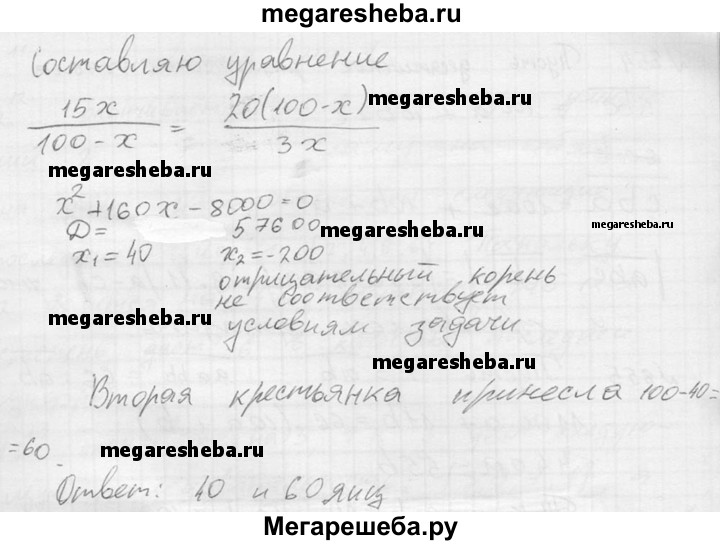 megaresheba.ru
Составляю уравнение
15x / 100 - x = 20(100-x) / 3x
megaresheba.ru
megaresheba.ru
x² + 160x - 8000 = 0
D = 57600
megaresheba.ru
megaresheba.ru
x₁ = 40 x₂ = -200
отрицательный корень
не соответствует
megaresheba.ru
условиям задачи
megaresheba.ru
Вторая крестьянка принесла 100-40=
=60.
megaresheba.ru
Ответ: 40 и 60 яиц
Мегарешеба.ру